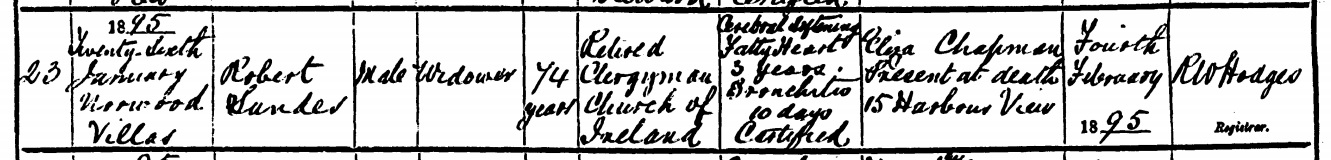 23
1895
Twenty-Sixth
January
Norwood
Villas
Robert
Sandes
Male
Widower
74
years
Retired
Clergyman
Church of
Ireland
Cerebral Softening
Fatty Heart
3 years.
Bronchitis
10 days
Certified.
Eliza Chapman
Present at death
15 Harbour View
Fourth
February
1895
RW Hodges
Registrar.